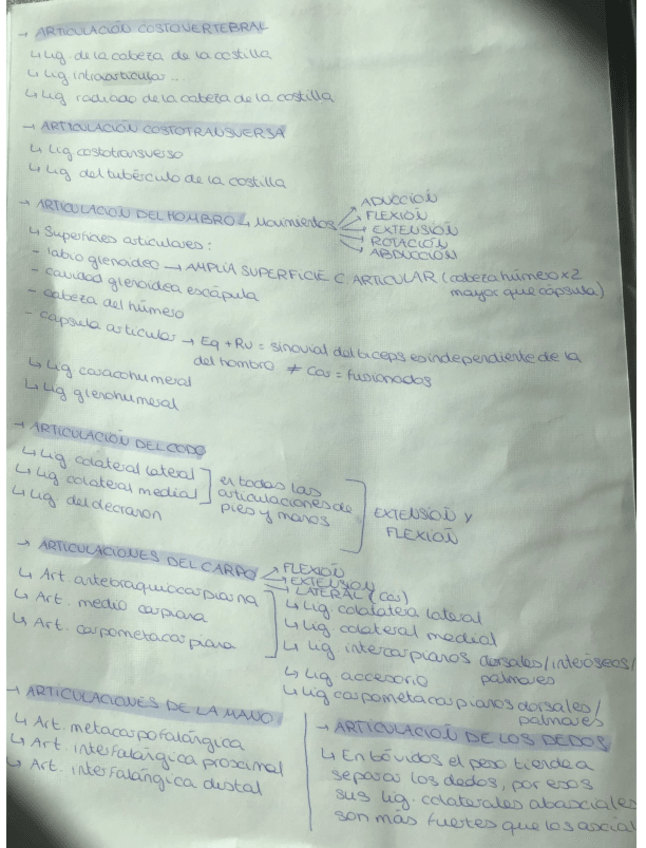 → ARTICULACIÓN COSTOVERTEBRAL
↳ Lig. de la cabeza de la costilla
↳ Lig intraarticular...
↳ Lig radiado de la cabeza de la costilla
→ ARTICULACIÓN COSTOTRANSVERSA
↳ Lig. costotransverso
↳ Lig del tubérculo de la costilla
→ ARTICULACIÓN DEL HOMBRO ↳ Movimientos
ADUCCIÓN
FLEXIÓN
EXTENSIÓN
ROTACIÓN
ABDUCCIÓN
↳ Superficies articulares:
- labio glenoideo → AMPLIA SUPERFICIE C. ARTICULAR (cabeza húmero x2
mayor que cápsula)
- cavidad glenoidea escápula
- cabeza del húmero
- cápsula articular → Eq + Ru = sinovial del biceps es independiente de la
del hombro ≠ Car = fusionados
↳ Lig coracohumeral
↳ Lig glenohumeral
→ ARTICULACIÓN DEL CODO
↳ Lig colateral lateral
↳ Lig colateral medial
↳ Lig. del olecranon
en todas las
articulaciones de
pies y manos
EXTENSIÓN Y
FLEXIÓN
→ ARTICULACIONES DEL CARPO
FLEXIÓN
EXTENSION
LATERAL (Car)
↳ Art. antebraquiocarpiana
↳ Art. medio carpiana
↳ Art. carpometacarpiana
↳ Lig colalatera lateral
↳ Lig colateral medial
↳ Lig intercarpianos dorsales/interóseos/
palmares
↳ Lig accesorio
↳ Lig carpometacarpianos dorsales/
palmares
→ ARTICULACIONES DE LA MANO
↳ Art. metacarpofalángica
↳ Art. interfalángica proximal
↳ Art. interfalángica distal
→ ARTICULACIÓN DE LOS DEDOS
↳ En bóvidos el peso tiende a
separar los dedos, por esos
sus lig. colaterales abaxiales
son más fuertes que los axial